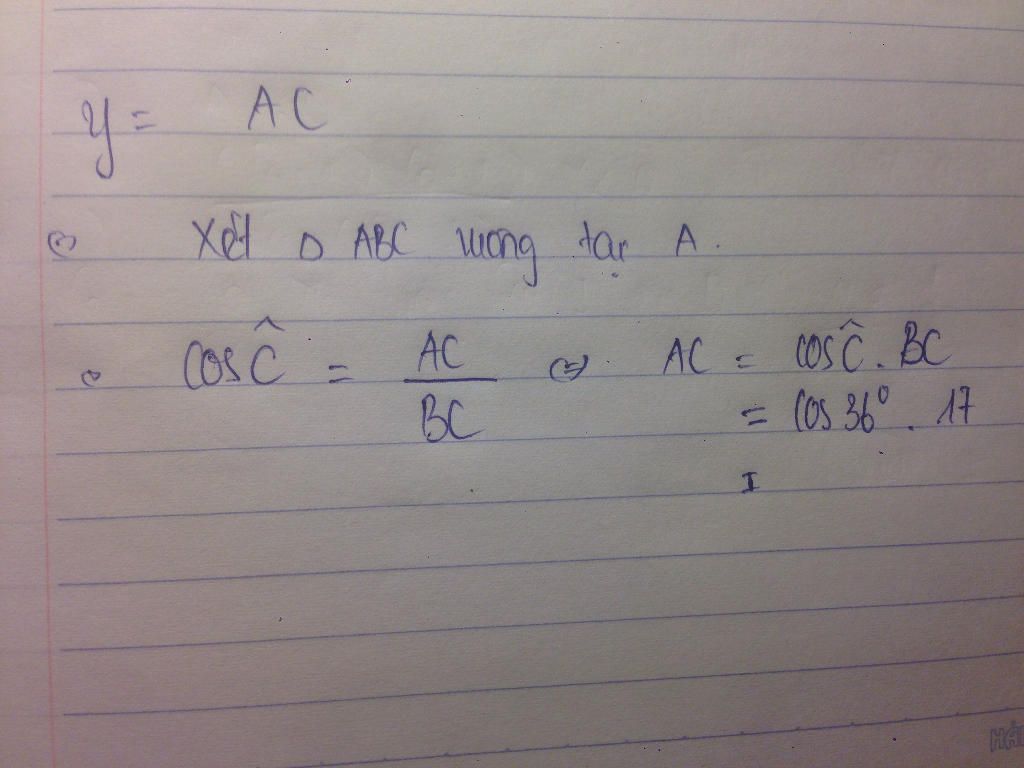 y = AC
⇔ Xét Δ ABC vuông tại A.
cosĈ = AC/BC ⇔ AC = cosĈ . BC
= cos 36° . 17
HẢ